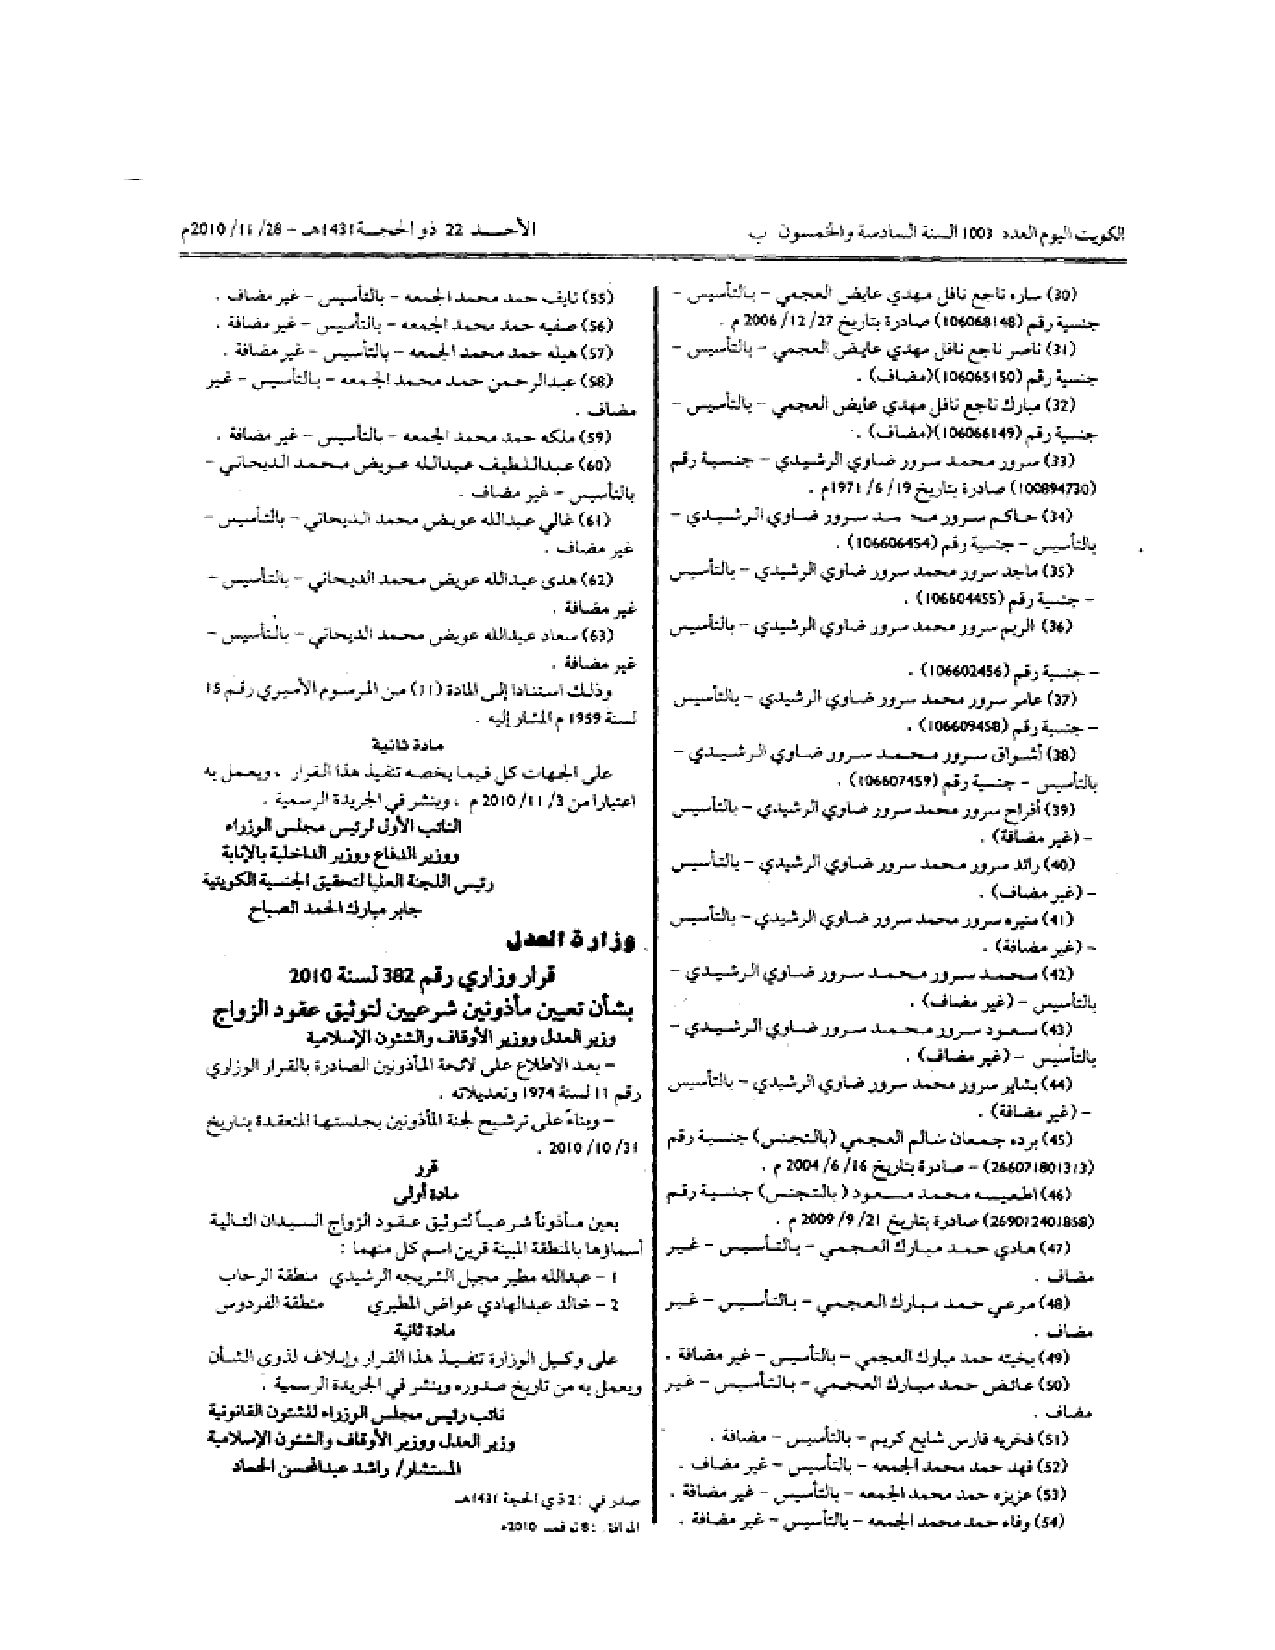 الكويت اليوم العدد 1003 السنة السادسة والخمسون ب
الأحـــد 22 ذو الحجــة 1431هـ - 28/ 11/ 2010م
(30) ساره ناجع نافل مهدي عايض العجمي - بالتأسيس -
جنسية رقم (106068148) صادرة بتاريخ 27/ 12/ 2006 م .
(31) ناصر ناجع نافل مهدي عايض العجمي - بالتأسيس -
جنسية رقم (106065150)(مضاف) .
(32) مبارك ناجع نافل مهدي عايض العجمي - بالتأسيس -
جنسية رقم (106066149)(مضاف) .
(33) سرور محمد سرور ضاوي الرشيدي - جنسية رقم
(100894730) صادرة بتاريخ 19/ 6/ 1971م .
(34) حاكم سرور محمد سرور ضاوي الرشيدي -
بالتأسيس - جنسية رقم (106606454) .
(35) ماجد سرور محمد سرور ضاوي الرشيدي - بالتأسيس
- جنسية رقم (106604455) .
(36) الريم سرور محمد سرور ضاوي الرشيدي - بالتأسيس
- جنسية رقم (106602456) .
(37) عامر سرور محمد سرور ضاوي الرشيدي - بالتأسيس
- جنسية رقم (106609458) .
(38) أشواق سرور محمد سرور ضاوي الرشيدي -
بالتأسيس - جنسية رقم (106607459) .
(39) أفراح سرور محمد سرور ضاوي الرشيدي - بالتأسيس
- (غير مضافة) .
(40) رائد سرور محمد سرور ضاوي الرشيدي - بالتأسيس
- (غير مضاف) .
(41) منيره سرور محمد سرور ضاوي الرشيدي - بالتأسيس
- (غير مضافة) .
(42) محمد سرور محمد سرور ضاوي الرشيدي -
بالتأسيس - (غير مضاف) .
(43) سعود سرور محمد سرور ضاوي الرشيدي -
بالتأسيس - (غير مضاف) .
(44) بشاير سرور محمد سرور ضاوي الرشيدي - بالتأسيس
- (غير مضافة) .
(45) برده جمعان سالم العجمي (بالتجنس) جنسية رقم
(266071801313) - صادرة بتاريخ 16/ 6/ 2004 م .
(46) لطعيسه محمد مسعود (بالتجنس) جنسية رقم
(269012401868) صادرة بتاريخ 21/ 9/ 2009 م .
(47) هادي حمد مبارك العجمي - بالتأسيس - غير
مضاف .
(48) مرعي حمد مبارك العجمي - بالتأسيس - غير
مضاف .
(49) بخيته حمد مبارك العجمي - بالتأسيس - غير مضافة .
(50) عائض حمد مبارك العجمي - بالتأسيس - غير
مضاف .
(51) فخريه فارس شايع كريم - بالتأسيس - مضافة .
(52) فهد حمد محمد الجمعه - بالتأسيس - غير مضاف .
(53) عزيزه حمد محمد الجمعه - بالتأسيس - غير مضافة .
(54) وفاء حمد محمد الجمعه - بالتأسيس - غير مضافة .
(55) نايف حمد محمد الجمعه - بالتأسيس - غير مضاف .
(56) صفيه حمد محمد الجمعه - بالتأسيس - غير مضافة .
(57) هيله حمد محمد الجمعه - بالتأسيس - غير مضافة .
(58) عبدالرحمن حمد محمد الجمعه - بالتأسيس - غير
مضاف .
(59) ملكه حمد محمد الجمعه - بالتأسيس - غير مضافة .
(60) عبداللطيف عبدالله عويض محمد الديحاني -
بالتأسيس - غير مضاف .
(61) غالي عبدالله عويض محمد الديحاني - بالتأسيس -
غير مضاف .
(62) هدى عبدالله عويض محمد الديحاني - بالتأسيس -
غير مضافة .
(63) سعاد عبدالله عويض محمد الديحاني - بالتأسيس -
غير مضافة .
وذلك استنادا إلى المادة (11) من المرسوم الأميري رقم 15
لسنة 1959 م المشار إليه .
مادة ثانية
على الجهات كل فيما يخصه تنفيذ هذا القرار ، ويعمل به
اعتبارا من 3/ 11/ 2010 م ، وينشر في الجريدة الرسمية .
النائب الأول لرئيس مجلس الوزراء
ووزير الدفاع ووزير الداخلية بالإنابة
رئيس اللجنة العليا لتحقيق الجنسية الكويتية
جابر مبارك الحمد الصباح
وزارة العدل
قرار وزاري رقم 382 لسنة 2010
بشأن تعيين مأذونين شرعيين لتوثيق عقود الزواج
وزير العدل ووزير الأوقاف والشئون الإسلامية
- بعد الاطلاع على لائحة المأذونين الصادرة بالقرار الوزاري
رقم 11 لسنة 1974 وتعديلاته .
- وبناءً على ترشيح لجنة المأذونين بجلستها المنعقدة بتاريخ
31/ 10/ 2010 .
قرر
مادة أولى
يعين مأذوناً شرعياً لتوثيق عقود الزواج السيدان التالية
أسماؤها بالمنطقة المبينة قرين اسم كل منهما :
1 - عبدالله مطير مجبل الشريجه الرشيدي منطقة الرحاب
2 - خالد عبدالهادي عواض المطيري منطقة الفردوس
مادة ثانية
على وكيل الوزارة تنفيذ هذا القرار وإبلاغه لذوي الشأن
ويعمل به من تاريخ صدوره وينشر في الجريدة الرسمية .
نائب رئيس مجلس الوزراء للشئون القانونية
وزير العدل ووزير الأوقاف والشئون الإسلامية
المستشار/ راشد عبدالمحسن الحماد
صدر في : 2 ذي الحجة 1431هـ
الموافق : 8 نوفمبر 2010م